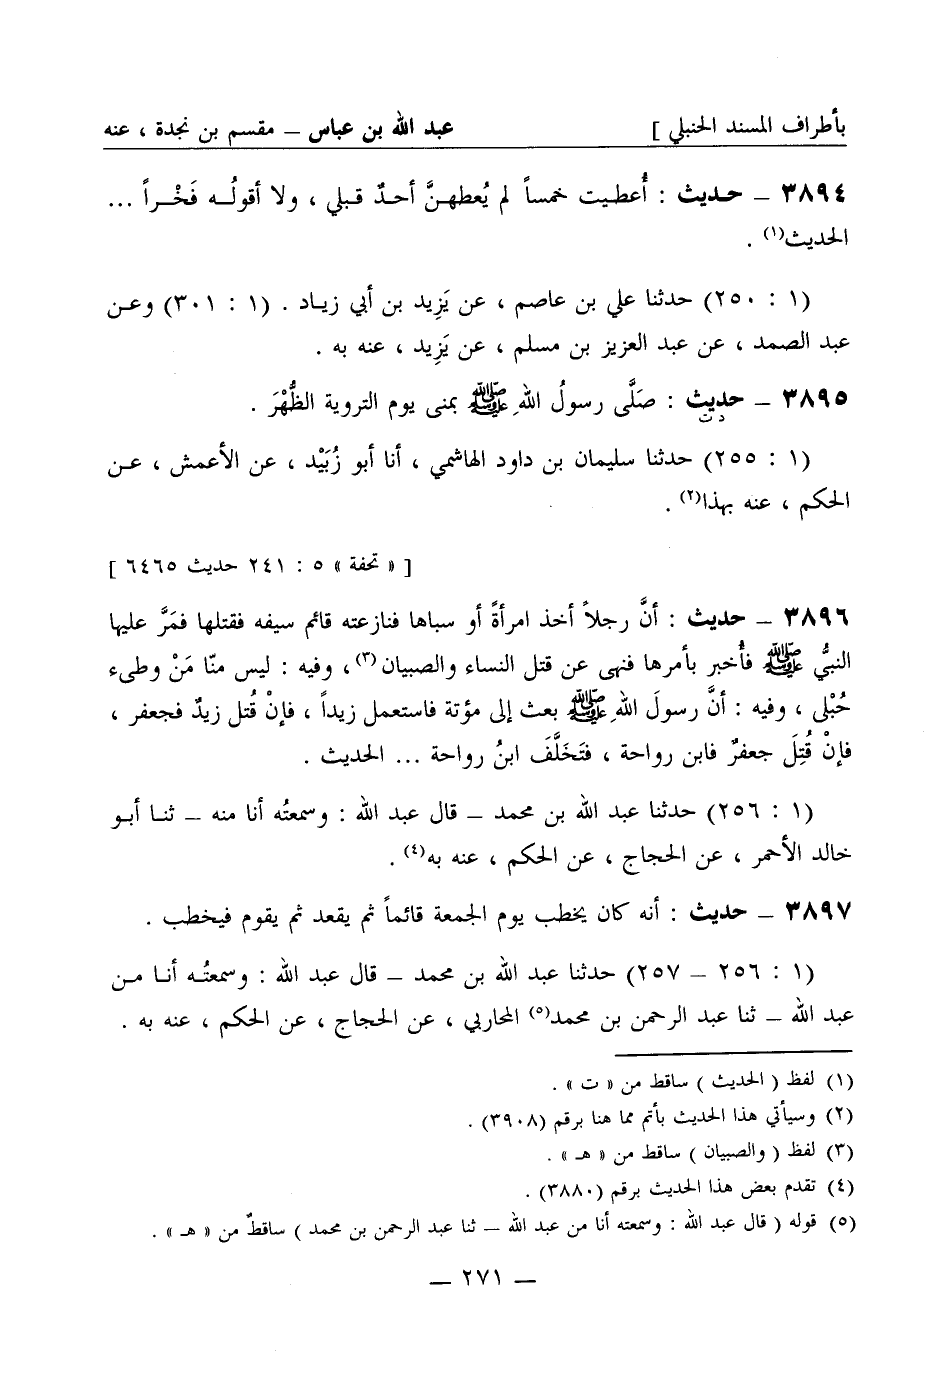 بأطراف المسند الحنبلي ] عبد الله بن عباس – مقسم بن نجدة ، عنه
٣٨٩٤ – حديث : أُعطيت خمساً لم يُعطهنَّ أحدٌ قبلي ، ولا أقولُه فَخْراً ...
الحديث(١) .
(١ : ٢٥٠) حدثنا علي بن عاصم ، عن يَزِيد بن أبي زياد . (١ : ٣٠١) وعن
عبد الصمد ، عن عبد العزيز بن مسلم ، عن يَزِيد ، عنه به .
٣٨٩٥ – حديث : صَلَّى رسولُ اللهِ ﷺ بمنى يوم التروية الظُّهْرَ .
د ت
(١ : ٢٥٥) حدثنا سليمان بن داود الهاشمي ، أنا أبو زُبَيْد ، عن الأعمش ، عن
الحكم ، عنه بهذا(٢) .
[ « تحفة » ٥ : ٢٤١ حديث ٦٤٦٥ ]
٣٨٩٦ – حديث : أنَّ رجلاً أخذ امرأةً أو سباها فنازعته قائم سيفه فقتلها فمَرَّ عليها
النبيُّ ﷺ فأُخبر بأمرها فنهى عن قتل النساء والصبيان(٣)، وفيه : ليس منّا مَنْ وطىء
حُبْلى ، وفيه : أنَّ رسولَ اللهِ ﷺ بعث إلى مؤتة فاستعمل زيداً ، فإنْ قُتل زيدٌ فجعفر ،
فإنْ قُتِلَ جعفرٌ فابن رواحة ، فتَخَلَّفَ ابنُ رواحة ... الحديث .
(١ : ٢٥٦) حدثنا عبد الله بن محمد – قال عبد الله : وسمعتُه أنا منه – ثنا أبو
خالد الأحمر ، عن الحجاج ، عن الحكم ، عنه به(٤) .
٣٨٩٧ – حديث : أنه كان يخطب يوم الجمعة قائماً ثم يقعد ثم يقوم فيخطب .
(١ : ٢٥٦ – ٢٥٧) حدثنا عبد الله بن محمد – قال عبد الله : وسمعتُه أنا من
عبد الله – ثنا عبد الرحمن بن محمد(٥) المحاربي ، عن الحجاج ، عن الحكم ، عنه به .
(١) لفظ ( الحديث ) ساقط من « ت » .
(٢) وسيأتي هذا الحديث بأتم مما هنا برقم (٣٩٠٨) .
(٣) لفظ ( والصبيان ) ساقط من « هـ » .
(٤) تقدم بعض هذا الحديث برقم (٣٨٨٠) .
(٥) قوله ( قال عبد الله : وسمعته أنا من عبد الله – ثنا عبد الرحمن بن محمد ) ساقطٌ من « هـ » .
– ٢٧١ –